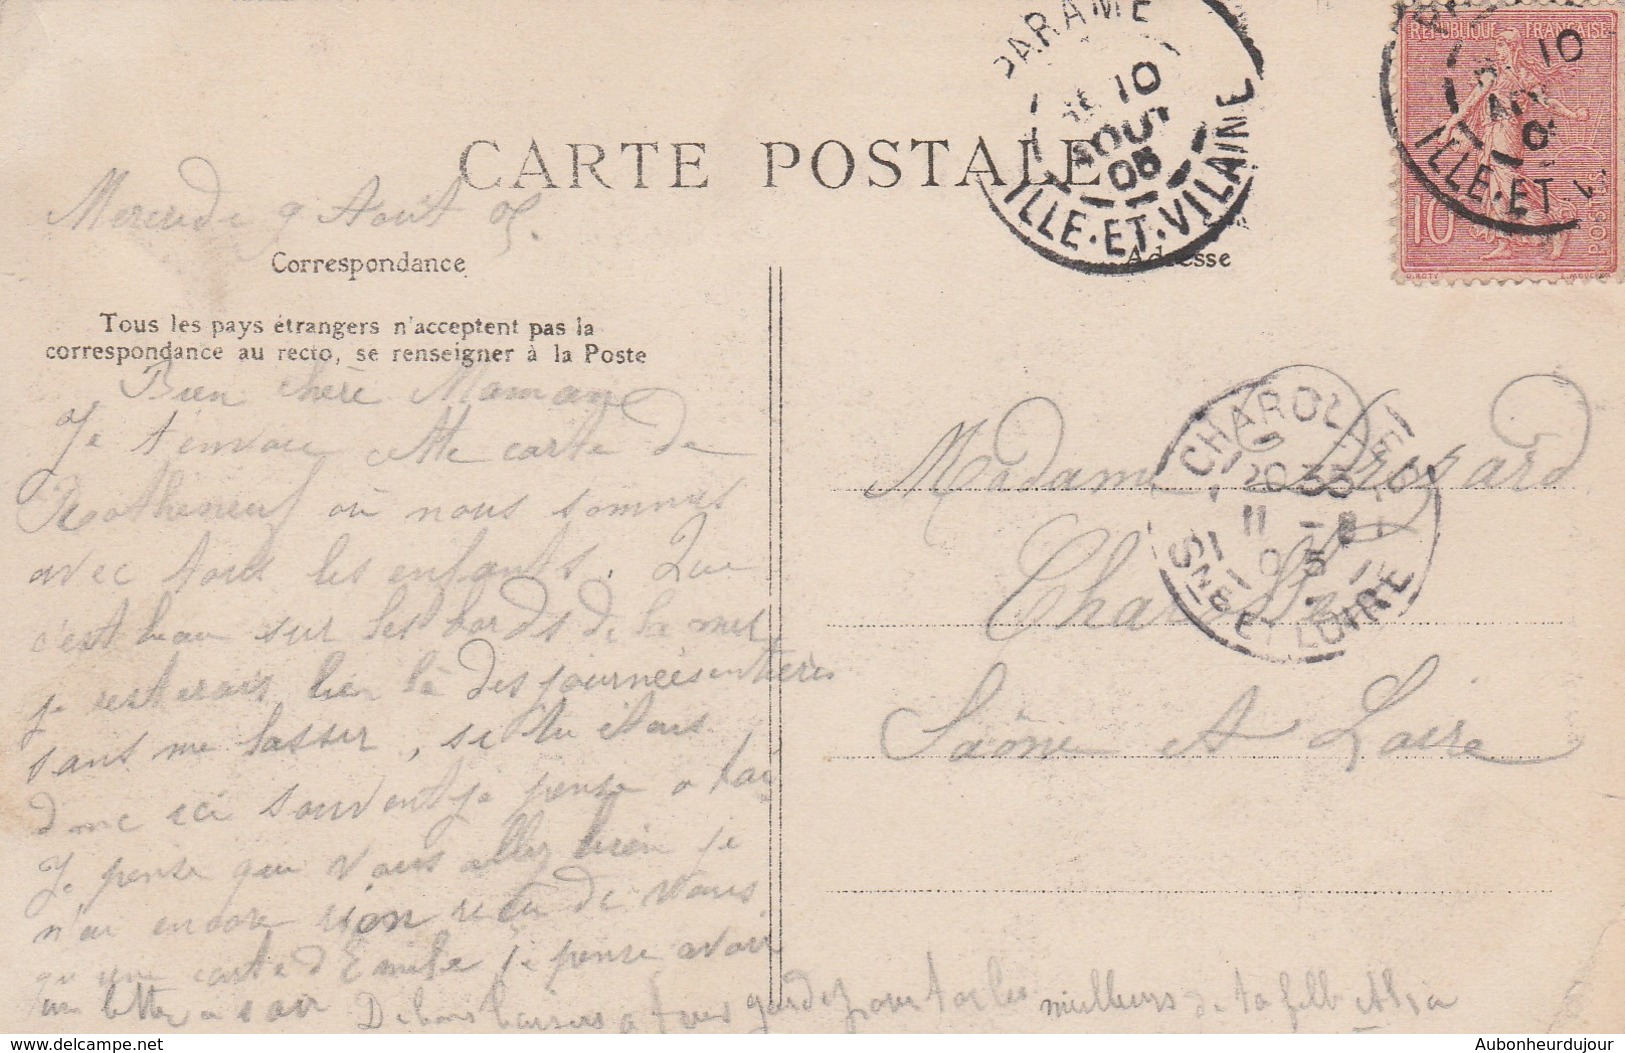 CARTE POSTALE
Mercredi 9 Août 05.
Correspondance
Tous les pays étrangers n'acceptent pas la
correspondance au recto, se renseigner à la Poste
Bien chère Maman
Je t'envoie cette carte de
Rotheneuf où nous sommes
avec tous les enfants. Que
c'est beau sur les bords de la mer
je resterais bien là des journées entières
sans me lasser, si tu étais
donc ici souvent je pense a toi
Je pense que vous allez bien je
n'ai encore rien reçu de vous
qu'une carte d'Emile je pense avoir
une lettre ce soir De bons baisers a tous gardez pour toi les meilleurs de ta fille
PARAMÉ
10
AOUT
05
ILLE-ET-VILAINE
Adresse
REPUBLIQUE FRANÇAISE
10
POSTES
O. ROTY
L. MOUCHON
10
ILLE-ET-V
CHAROLLES
20 35
11 -8
05
SNE ET LOIRE
Madame
Charolles
Saône et Loire
www.delcampe.net
Aubonheurdujour